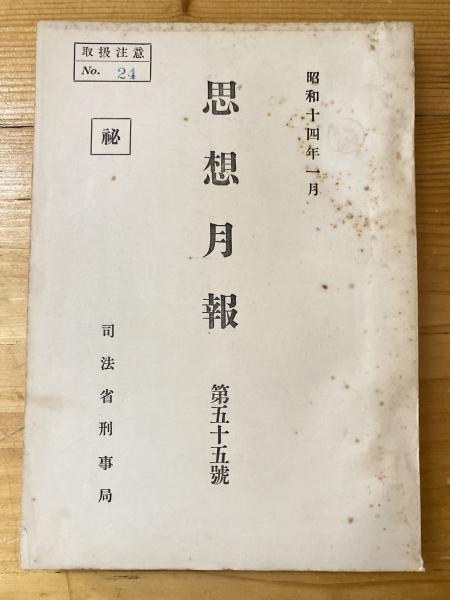 昭和十四年一月
思想月報
第五十五號
取扱注意
No. 24
祕
司法省刑事局